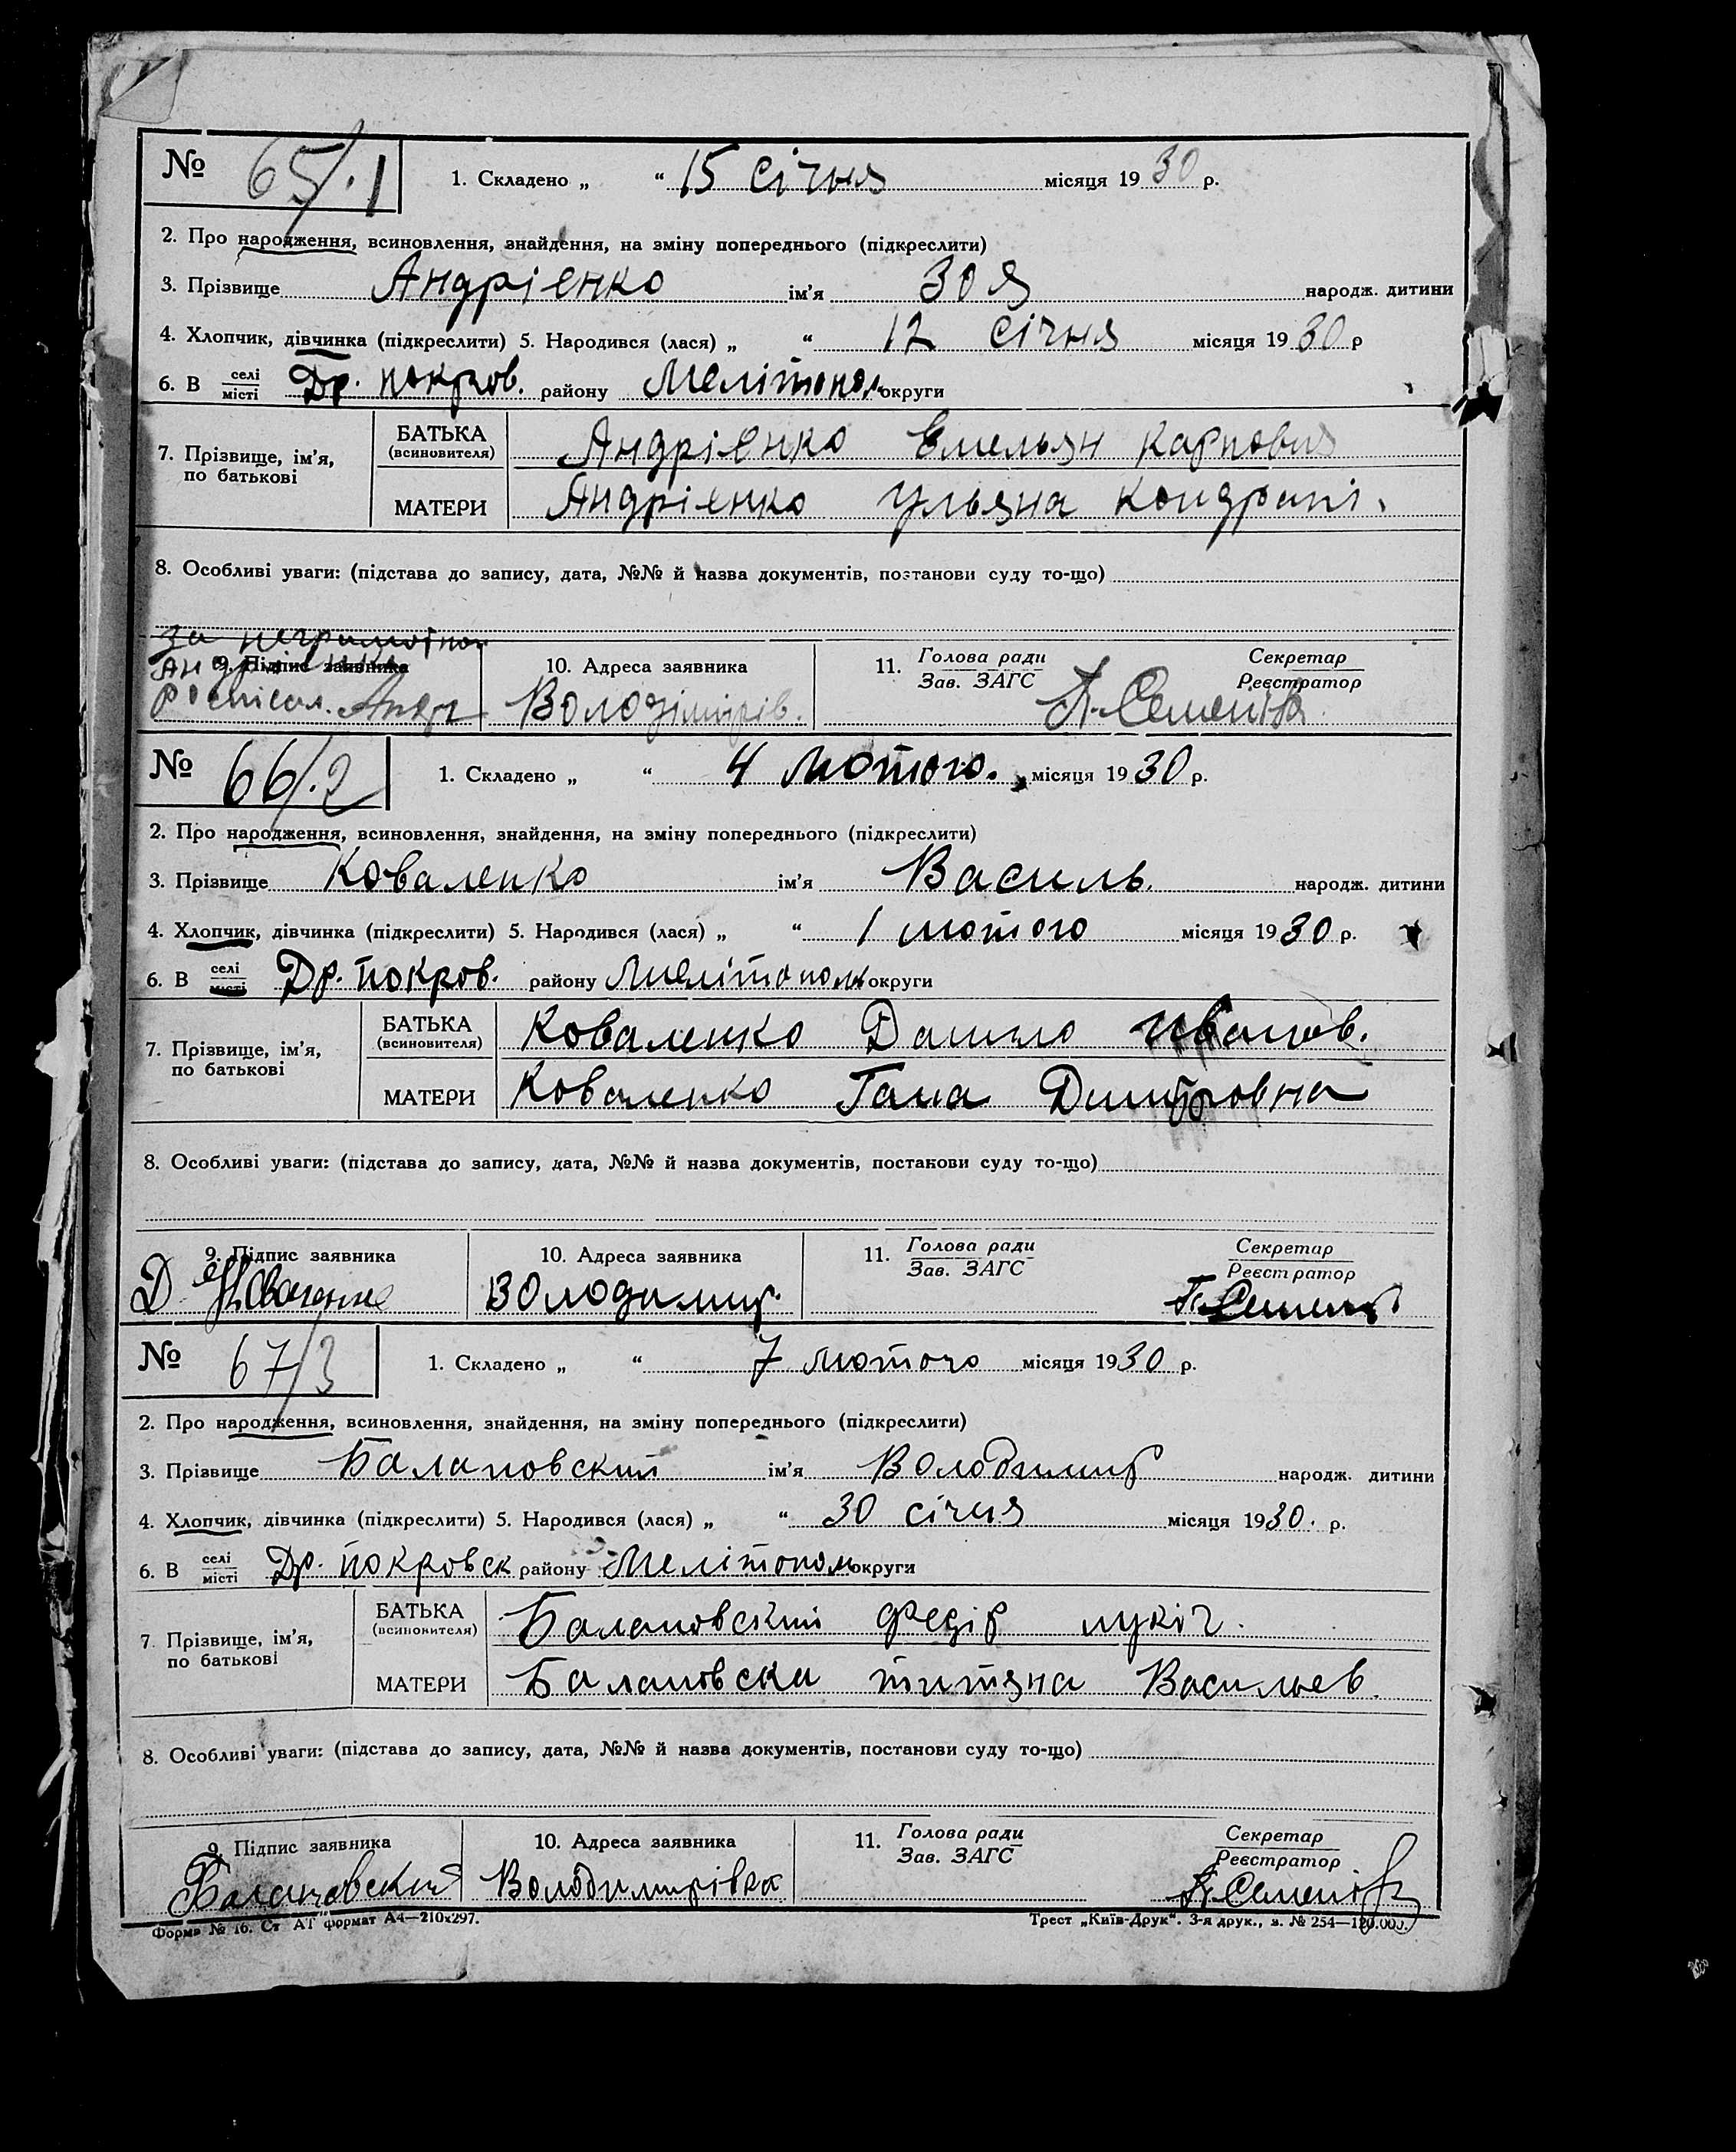 № 65/.1 1. Складено „ “ 15 січня місяця 1930 р.
2. Про народження, всиновлення, знайдення, на зміну попереднього (підкреслити)
3. Прізвище Андріенко ім'я Зоя народж. дитини
4. Хлопчик, дівчинка (підкреслити) 5. Народився (лася) „ “ 12 січня місяця 1930 р
6. В селі місті Др. покров. району Мелітопол. округи
7. Прізвище, ім'я, по батькові
БАТЬКА (всиновителя) Андріенко Емельян Карпович
МАТЕРИ Андріенко Ульяна Кондраті.
8. Особливі уваги: (підстава до запису, дата, №№ й назва документів, постанови суду то-що)
за неграмотног
9. Підпис заявника 10. Адреса заявника 11. Голова ради Зав. ЗАГС Секретар Реєстратор
Росписал. Андр Володімирів. П. Семенів
№ 66/.2 1. Складено „ “ 4 Лютого. місяця 1930 р.
2. Про народження, всиновлення, знайдення, на зміну попереднього (підкреслити)
3. Прізвище Коваленко ім'я Василь. народж. дитини
4. Хлопчик, дівчинка (підкреслити) 5. Народився (лася) „ “ 1 лютого місяця 1930 р.
6. В селі місті Др. покров. району Мелітопол округи
7. Прізвище, ім'я, по батькові
БАТЬКА (всиновителя) Коваленко Данило Иванов.
МАТЕРИ Коваленко Гана Дмитровна
8. Особливі уваги: (підстава до запису, дата, №№ й назва документів, постанови суду то-що)
9. Підпис заявника 10. Адреса заявника 11. Голова ради Зав. ЗАГС Секретар Реєстратор
Д Володимир. П. Семенів
№ 67/3 1. Складено „ “ 7 лютого місяця 1930 р.
2. Про народження, всиновлення, знайдення, на зміну попереднього (підкреслити)
3. Прізвище Балановский ім'я Володимир народж. дитини
4. Хлопчик, дівчинка (підкреслити) 5. Народився (лася) „ “ 30 січня місяця 1930. р.
6. В селі місті Др. покровск району Мелітопол округи
7. Прізвище, ім'я, по батькові
БАТЬКА (всиновителя) Балановский Федір лукіч.
МАТЕРИ Балановска титяна Васильев.
8. Особливі уваги: (підстава до запису, дата, №№ й назва документів, постанови суду то-що)
9. Підпис заявника 10. Адреса заявника 11. Голова ради Зав. ЗАГС Секретар Реєстратор
Балановский Володимирівка П. Семенів
Форма № 16. Ст АТ формат А4—210x297. Трест „Київ-Друк“. 3-я друк., з. № 254—120.000.